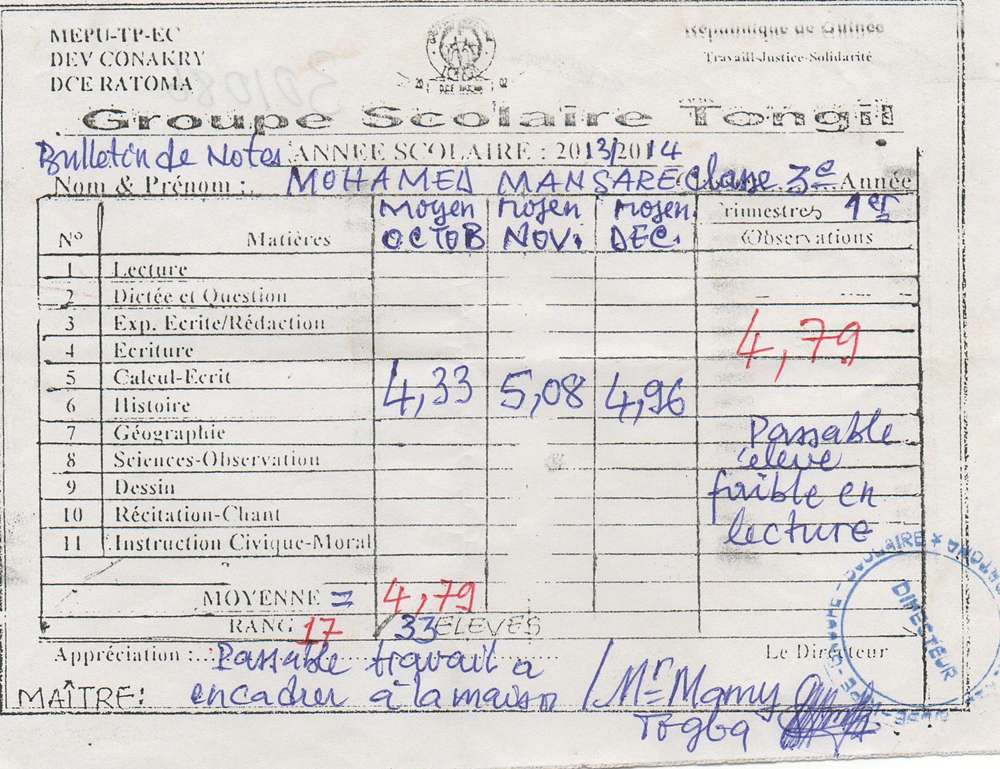 MEPU-TP-EC
DEV CONAKRY
DCE RATOMA
République de Guinée
Travail-Justice-Solidarité
Groupe Scolaire Tongil
Bulletin de Notes ANNEE SCOLAIRE : 2013/2014
Nom & Prénom : MOHAMED MANSARE Classe 3e Année
N° Matières Moyen OCTOB Moyen NOV. Moyen DEC. Trimestres 1er
Observations
1 Lecture
2 Dictée et Question
3 Exp. Ecrite/Rédaction
4 Ecriture
4,79
5 Calcul-Ecrit
4,33 5,08 4,96
6 Histoire
7 Géographie
8 Sciences-Observation
9 Dessin
10 Récitation-Chant
11 Instruction Civique-Moral
Passable
élève
faible en
lecture
MOYENNE = 4,79
RANG 17 / 33 ELEVES
Appréciation : Passable travail a
encadrer à la maison
Le Directeur
MAÎTRE: / Mr Mamy
Togba
DIRECTEUR